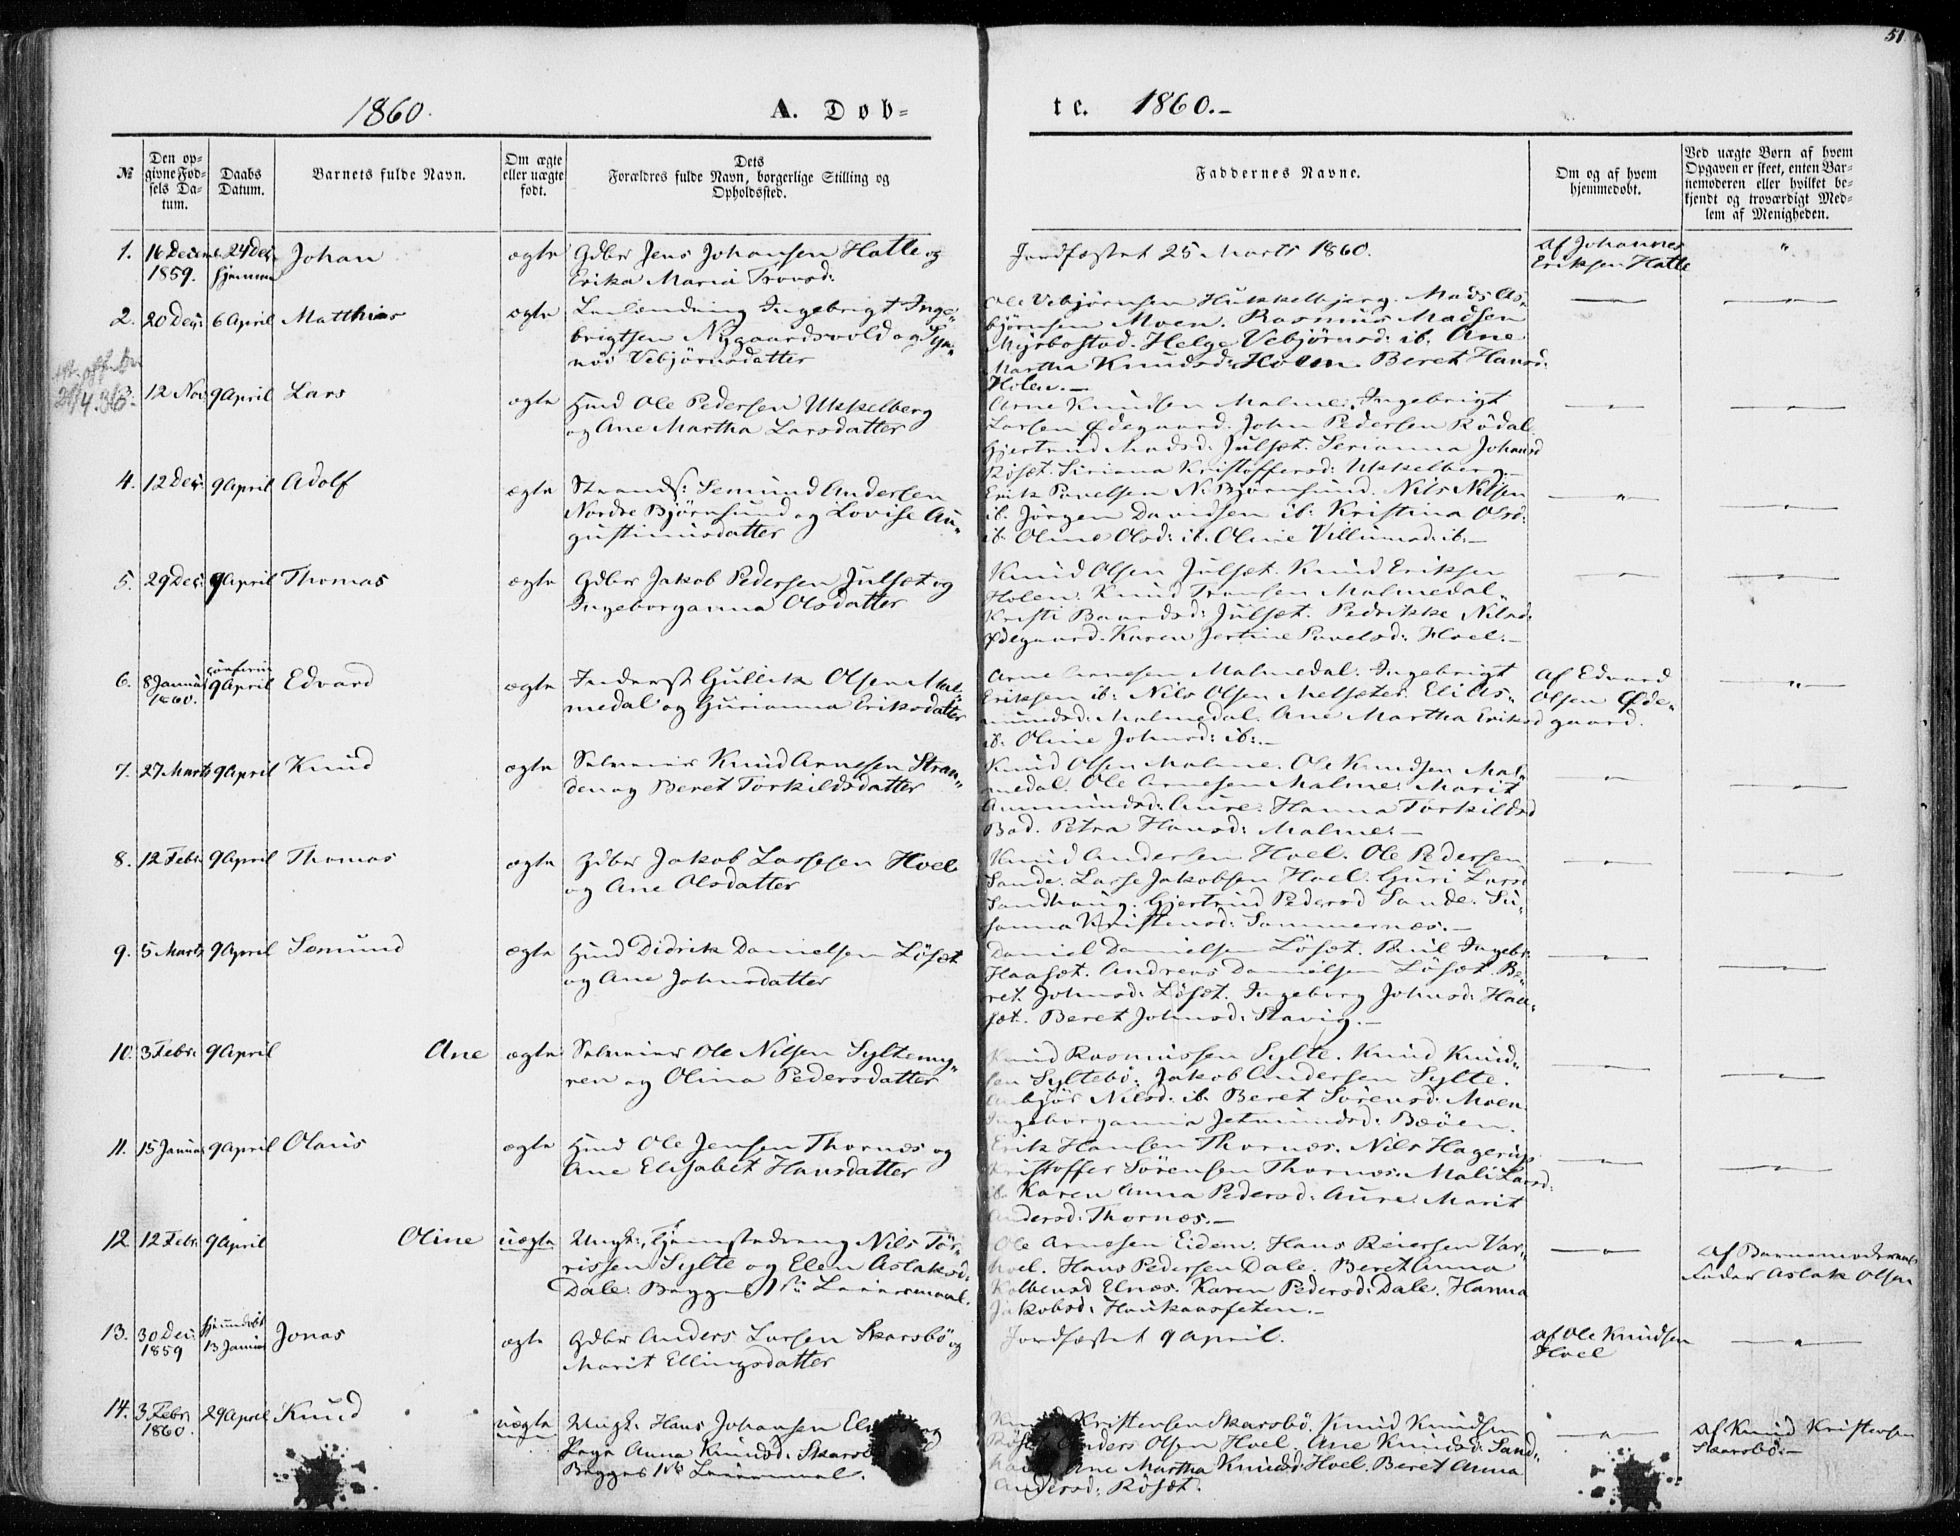 51
1860.
A. Døb-
te.
1860.-
№
Den op-
givne Fød-
sels Da-
tum.
Daabs
Datum.
Barnets fulde Navn.
Om ægte
eller uægte
født.
Dets
Forældres fulde Navn, borgerlige Stilling og
Opholdssted.
Faddernes Navne.
Om og af hvem
hjemmedøbt.
Ved uægte Børn af hvem
Opgaven er skeet, enten Bar-
nemoderen eller hvilket be-
kjendt og troværdigt Med-
lem af Menigheden.
1. 16 Decem 24 Dec. Johan ægte Gdbr Jens Johansen Hatle og
1859. hjemme Erika Maria
Jordfæstet 25 Marts 1860.
Af Johannes
Eriksen Hatle
"
2. 20 Dec: 6 April Matthias ægte Ingebrigt Inge-
brigtsen Nygaardsvold og Syn-
növ Vebjörnsdatter
Ole Vebjörnsen Hukkelbjerg. Mads As-
björnsen Moen. Rasmus Madsen
Myrbostad. Helge Vebjörnsd: ib. Ane
Martha Knudsd: Holen. Beret Hansd:
Holen.-
3. 12 Nov. 9 April Lars ægte Huusd Ole Pedersen Ukkelberg
og Ane Martha Larsdatter
Arne Knudsen Malme. Ingebrigt
Larsen Ødegaard. John Pedersen Rödal
Gjertrud Madsd: Julset. Serianna Johansd
Röset. Siriana Kristoffersd: Ukkelberg.-
4. 12 Dec: 9 April Adolf ægte Strands: Semund Andersen
Nordre Björnsund og Lovise Au-
gustinusdatter
Erik Pavelsen N. Björnsund. Nils Nilsen
ib. Jörgen Davidsen ib: Kristina Olsd:
ib. Oline Olsd: ib. Oline Villumsd: ib.-
5. 29 Dec: 9 April Thomas ægte Gdbr Jakob Pedersen Julset og
Ingeborganna Olsdatter
Knud Olsen Julset. Knud Eriksen
Holen. Knud Tronsen Malmedal.
Kristi Baardsd: Julset. Pedrikke Nilsd:
Ødegaard. Karen Jertine Pavelsd: Hoel.-
6. 8 Januar 9 April Edvard ægte Inderst Gullik Olsen Mal-
1860. medal og Gurianna Eriksdatter
Arne Arnesen Malmedal. Ingebrigt
Eriksen ib: Nils Olsen Melseter. Eli As-
mundsd: Malmedal. Ane Martha Eriksd
ib. Oline Johnsd: ib:-
Af Edvard
Olsen Øde-
gaard.
"
7. 27 Marts 9 April Knud ægte Selveier Knud Arnesen Stran-
den og Beret Torkildsdatter
Knud Olsen Malme. Ole Knudsen Mal-
medal. Ole Arnesen Malme. Marit
Ammundsd: Aure. Hanna Torkildsd
Bod. Petra Hansd: Malme.-
8. 12 Febr. 9 April Thomas ægte Gdbr Jakob Lassesen Hoel
og Ane Olsdatter
Knud Andersen Hoel. Ole Pedersen
Sande. Lasse Jakobsen Hoel. Guri Larsd
Sandhaug. Gjertrud Pedersd Sande. Su-
sanna Kristensd: Sommernes.-
9. 5 Marts 9 April Semund ægte Huusd Didrik Danielsen Löset
og Ane Johnsdatter
Daniel Danielsen Löset. Ingebr:
Haaset. Andreas Danielsen Löset. Be-
ret Johnsd: Löset. Ingeborg Johnsd: Haa-
set. Beret Johnsd: Stavig.-
10. 3 Febr: 9 April Ane ægte Selveier Ole Nilsen Syltemy-
ren og Olina Pedersdatter
Knud Rasmussen Sylte. Knud Knud-
sen Syltebö. Jakob Andersen Sylte.
Anbjör Nilsd: ib. Beret Sörensd: Moen.
Ingeborganna Jetmundsd: Böen.
11. 15 Januar 9 April Olaus ægte Huusd Ole Jensen Thornes og
Ane Elisabet Hansdatter
Erik Hansen Thornes. Nils Hagerup
Kristoffer Sörensen Thornes. Mali Larsd:
ib. Karen Anna Pedersd: Aure. Marit
Andersd: Thornes.-
12. 12 Febr. 9 April Oline uægte Ungk: Tjenestedreng Nils Tör-
rissen Sylte og Elen Aslaksd:
Dale. Begges 1ste Leiermaal.
Ole Arnesen Eidem. Hans Reiersen Var-
hoel. Hans Pedersen Dale. Beret Anna
Kolbensd Elnes. Karen Pedersd: Dale. Hanna
Jakobsd: Haukaasfeten.-
Af Barnemoderens
Fader Aslak Olsen
13. 30 Dec. hjemmedöbt Jonas ægte Gdbr Anders Larsen Skarsbö og
1859 13 Januar Marit Ellingsdatter
Jordfæstet 9 April.
Af Ole Knudsen
Hoel
14. 3 Febr: 29 April Knud uægte Ungk. Hans Johansen og
1860. Pige Anna Knudsd:
Begges 1ste Leiermaal.
Kristensen Skarsbö. Knud Knudsen
Anders Olsen Hoel. Ane Knudsd: Sand-
Ane Martha Knudsd: Hoel. Beret Anna
Andersd: Röset.
Af Knud Kristensen
Skarsbö.-